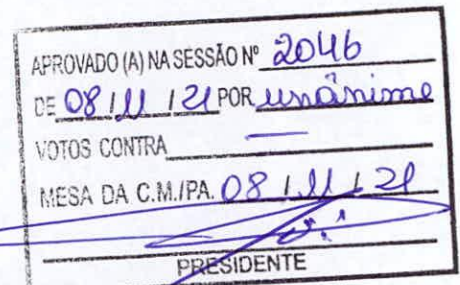 APROVADO (A) NA SESSÃO Nº 2046
DE 08 / 11 / 21 POR unânime
VOTOS CONTRA —
MESA DA C.M./PA. 08 / 11 / 21
PRESIDENTE